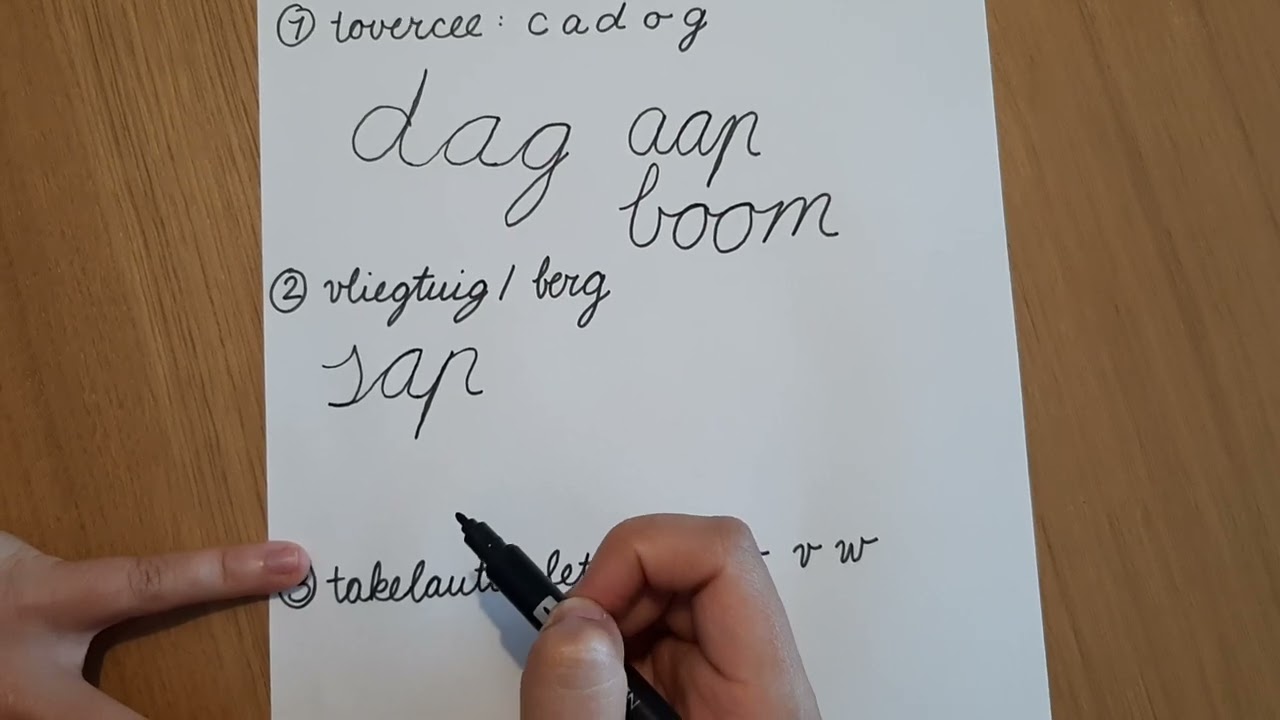 ① tovercee: c a d o g
dag aap
boom
② vliegtuig / berg
sap
③ v w